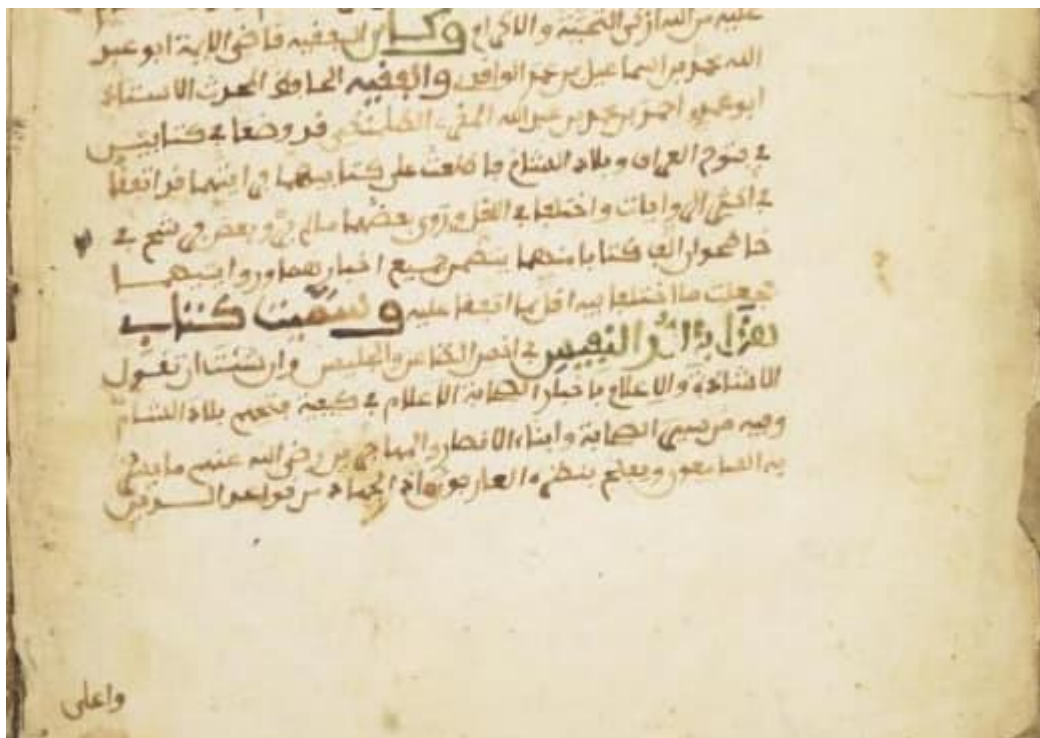 عليه من الله أزكى التحية والإكرام وكان الفقيه قاضي الأيمة أبو عبد
الله محمد بن إسماعيل بن محمد الواقدي والفقيه الحافظ المحدث الأستاذ
أبو محمد أحمد بن محمد بن عبد الله المقرئ قد وضعا كتابين
في فتوح العراق وبلاد الشام فاطلعت على كتابيهما فرأيتهما قد اتفقا
في أكثر الروايات واختلفا في أقل وروى بعضهما ما لم يرو بعض
كتابا منهما يتضمن جميع أخبارهما وروايتهما
فجعلت ما اختلفا فيه أقل مما اتفقا عليه وسميت كتاب
هذا بالدر النفيس في أنس الظاعن والجليس وإن شئت أن تقول
الإشادة والإعلام بأخبار الصحابة الأعلام في كيفية فتحهم بلاد الشام
وفيه من سير الصحابة وأبناء الأنصار والمهاجرين رضي الله عنهم ما
به السامعون ويعلم بنظره العارفون أن الجهاد من قواعد الدين
واعلى